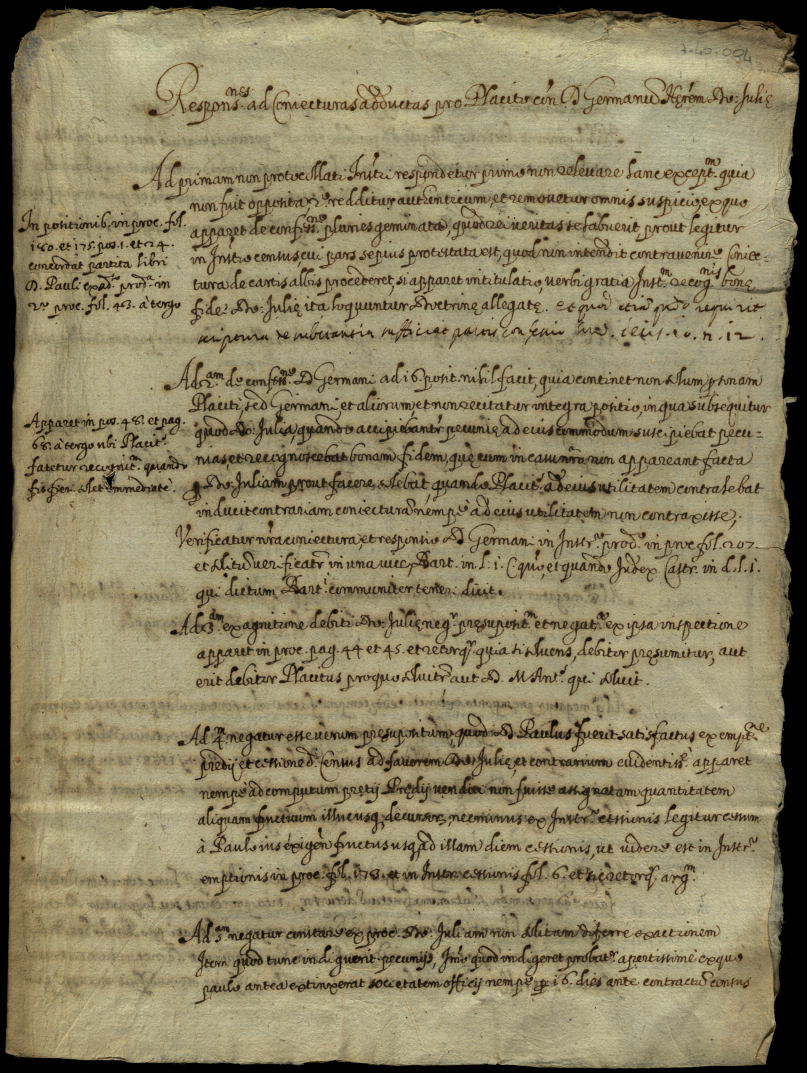 7-40-094
Respon.nes ad Coniecturas adductas pro Placito cún D Germanú Hęrem Dnę: Julię
Ad primam non protocollati Instri respondetur primo non releuare hanc except.m quia
non fuit opposita redditur autenticum, et remouetur omnis suspicio, ex quo
apparet de confess.ne pluries geminata, quod rei veritas se habuerit, prout legitur
in Instro census cui pars sepius protestata est, quod non intendit contrauenire. Coniec=
tura de cartis albis procederet, si apparet intitulatio, uerbi gratia Inst.m recog.nis bonę
fidei Dnę: Julię ita loquuntur Doctrinę allegatę. et quod etiam
scriptura de substantia sufficiat n. 12.
In positionib. in proc. fol.
150. et 175. pos. 1. et 24.
concordat partita libri
D. Pauli ex ad.o prod.a in
proc. fol. 43. à tergo
Ad 2.am de confess.ne D Germani ad 16. posit. nihil facit, quia continet non solum personam
Placiti, sed Germani et aliorum, et non recitatur integra positio, in qua subsequitur
quod Dna: Julia, quando accipiebantr pecunię ad eius commodum, suscipiebat pecu=
nias, et recognoscebat bonam fidem, quę cum in casu nro non appareant facta
p Dnam Juliam prout facere solebat quando Placit.s ad eius utilitatem contrahebat
inducit contrariam coniecturam nempe ad eius utilitatem non contraxisse;
Apparet in pos. 48. et pag.
68. à tergo ubi Placit.s
fatetur recognit.m quando
fieri solet immediate.
Verificatur nra coniectura, et responsio D Germani in Instr.o prod.o in proc. fol. 207.
et solitum uerificatr in una uice, Bart. in l. 1. C qui, et quando Judex Castr. in d. l. 1.
qui dictum Bart. communiter teneri dicit.
Ad 3.am ex agnitione debiti Dnę: Julię neq presupposit.m et negat.r ex ipsa inspectione
apparet in proc. pag. 44 et 45. et retorq.r quia si soluens, debitor pręsumitur, aut
erit debitor Placitus pro quo soluitr aut D. M Ant.s qui soluit.
Ad 4.m negatur esse uerum presupositum, quod D Paulus fuerit satisfactus ex empt.ne
prędij et cessione d. Census ad fauorem Dnę Julię, et contrarium euidentiss.e apparet
nempè ad computum pretij Prędij uenditi non fuisse assignatam quantitatem
aliquam fructuum illucusq, decursor, nec minus ex Instr.o cessionis legitur cessum
à Paulo ius exigen. fructus usq, ad illam diem cessionis, ut uidere est in Instr.o
emptionis in proc. fol. 178. et in Instr. cessionis fol. 6. et sic retorq.r arg.m
Ad 5.am negatur constare ex proc. Dnam: Juliam non solitam diferre exactionem
Item quod tunc indiguerit pecunijs, Imo quod indigeret probat.r apertissimè ex quo
paulo antea extinxerat societatem officij nempè p 16. dies ante contractú census